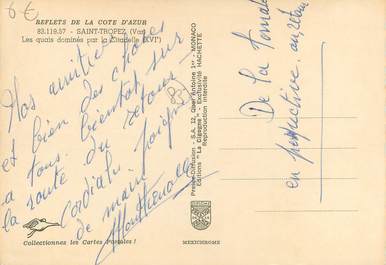 6€
REFLETS DE LA COTE D'AZUR
83.119.57 - SAINT-TROPEZ (Var)
Les quais dominés par la Citadelle (XVIe)
et bien des choses
à tous. bientôt sur
la route du retour
Cordiale poignée
de main
83
Presse-Diffusion - S.A. 12, Quai Antoine 1er - MONACO
Editions "La Cigogne" - Exclusivité HACHETTE
Reproduction interdite
De la tomate
en
Collectionnez les Cartes Postales !
MEXICHROME